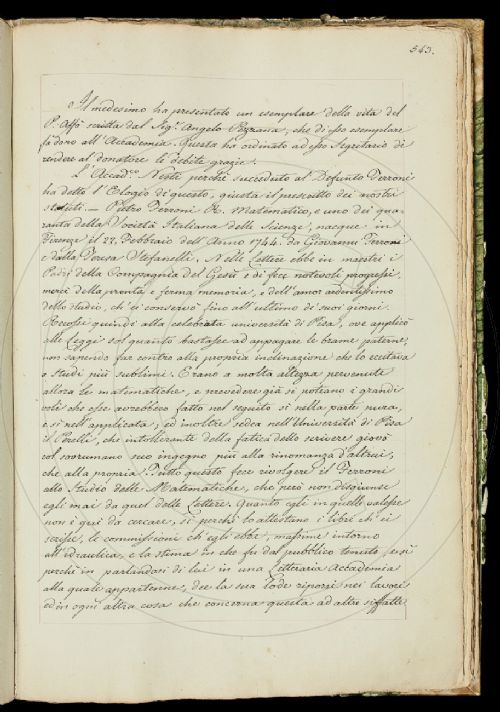 543.
Il medesimo ha presentato un esemplare della vita del
P. Affò scritta dal Sig.r Angelo Pezzana, che di esso esemplare
fa dono all'Accademia. Questa ha ordinato ad esso Segretario di
rendere al donatore le debite grazie.
L'Accad.co Nesti perchè succeduto al Defunto Ferroni
ha detto l'Elogio di questo, giusta il prescritto dei nostri
statuti. — Pietro Ferroni R. Matematico, e uno dei qua-
ranta della Società Italiana delle Scienze, nacque in
Firenze il 22. Febbraio dell'Anno 1744. da Giovanni Ferroni
e dalla Teresa Stefanelli. Nelle Lettere ebbe in maestri i
Padri della Compagnia del Gesù e di fece notevoli progressi,
mercè della pronta e ferma memoria, e dell'amor ardentissimo
dello studio, ch'ei conservò fino all'ultimo di suoi giorni.
Recossi quindi alla celebrata università di Pisa, ove applicò
alle Leggi sol quanto bastasse ad appagare le brame paterne,
non sapendo far contro alla propria inclinazione che lo eccitava
a studi più sublimi. Erano a molta altezza pervenute
allora le matematiche, e prevedere già si potevano i grandi
voli che esse avrebbero fatto nel seguito sì nella parte pura,
e sì nell'applicata, ed inoltre sedea nell'Università di Pisa
il Perelli, che intollerante della fatica dello scrivere giovò
col sovrumano suo ingegno più alla rinomanza d'altrui,
che alla propria. Tutto questo fece rivolgere il Ferroni
allo Studio delle Matematiche, che però non disgiunse
egli mai da quel delle Lettere. Quanto egli in quelle valesse
non è qui da cercare, sì perchè lo attestino i libri ch'ei
scrisse, le commissioni ch'egli ebbe, massime intorno
all'idraulica, e la stima in che fu dal pubblico tenuto, e sì
perchè in parlandosi di lui in una Letteraria Accademia
alla quale appartenne, dee la sua lode riporsi nei lavori
ed in ogni altra cosa che concerna questa ad altre siffatte